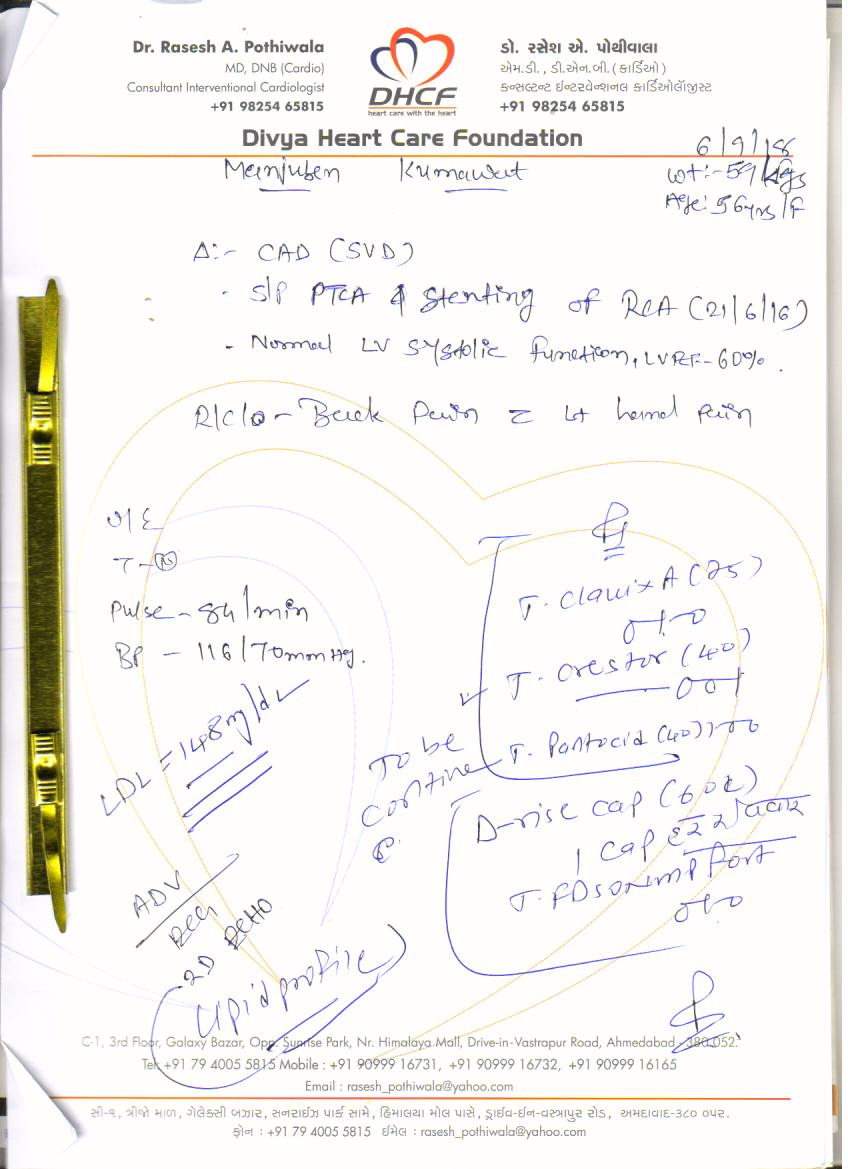 Dr. Rasesh A. Pothiwala
MD, DNB (Cardio)
Consultant Interventional Cardiologist
+91 98254 65815
DHCF
heart care with the heart
ડો. રસેશ એ. પોથીવાલા
એમ.ડી. , ડી.એન.બી. ( કાર્ડિઓ )
કન્સલ્ટન્ટ ઇન્ટરવેન્શનલ કાર્ડિઓલૉજીસ્ટ
+91 98254 65815
Divya Heart Care Foundation
6/9/18
Manjuben Kumawat
wt:- 59 kgs
Age: 56yrs/F
Δ:- CAD (SVD)
- S/P PTCA & Stenting of RCA (21/6/16)
- Normal LV systolic function, LVEF-60%.
R/C/O - Back Pain = Lt hand pain
O/E
T - (N)
Pulse - 84/min
BP - 116/70mmHg.
LDL = 148mg/dl
T. Clavix A (75)
0-1-0
T. Crestor (40)
0 0 1
T. Pantocid (40) 1-0-0
To be
continue
D-rise cap (60k)
1 cap
0-1-0
ADV
ECG
2D ECHO
Lipid profile
C-1, 3rd Floor, Galaxy Bazar, Opp. Sunrise Park, Nr. Himalaya Mall, Drive-in-Vastrapur Road, Ahmedabad - 380 052.
Tel: +91 79 4005 5815 Mobile : +91 90999 16731, +91 90999 16732, +91 90999 16165
Email : rasesh_pothiwala@yahoo.com
સી-૧, ત્રીજો માળ, ગેલેક્સી બઝાર, સનરાઈઝ પાર્ક સામે, હિમાલયા મોલ પાસે, ડ્રાઈવ-ઈન-વસ્ત્રાપુર રોડ, અમદાવાદ-૩૮૦ ૦૫૨.
ફોન : +91 79 4005 5815 ઈમેલ : rasesh_pothiwala@yahoo.com